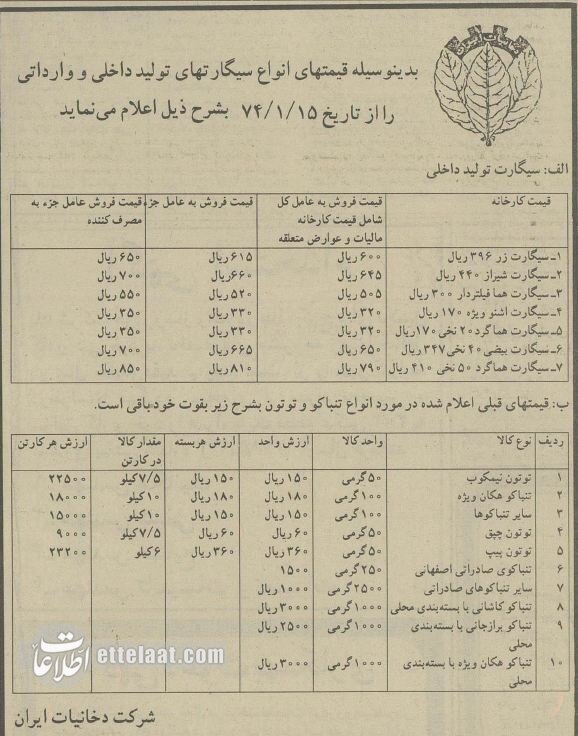 بدینوسیله قیمتهای انواع سیگارتهای تولید داخلی و وارداتی
را از تاریخ ۷۴/۱/۱۵ بشرح ذیل اعلام می‌نماید
الف: سیگارت تولید داخلی
قیمت کارخانه | قیمت فروش به عامل کل شامل قیمت کارخانه مالیات و عوارض متعلقه | قیمت فروش به عامل جزء | قیمت فروش عامل جزء به مصرف کننده
۱ـ سیگارت زر ۳۹۶ ریال | ۶۰۰ ریال | ۶۱۵ ریال | ۶۵۰ ریال
۲ـ سیگارت شیراز ۴۴۰ ریال | ۶۴۵ ریال | ۶۶۰ ریال | ۷۰۰ ریال
۳ـ سیگارت هما فیلتردار ۳۰۰ ریال | ۵۰۵ ریال | ۵۲۰ ریال | ۵۵۰ ریال
۴ـ سیگارت اشنو ویژه ۱۷۰ ریال | ۳۲۰ ریال | ۳۳۰ ریال | ۳۵۰ ریال
۵ـ سیگارت هما گرد ۲۰ نخی ۱۷۰ ریال | ۳۲۰ ریال | ۳۳۰ ریال | ۳۵۰ ریال
۶ـ سیگارت بیضی ۴۰ نخی ۳۴۷ ریال | ۶۵۰ ریال | ۶۶۵ ریال | ۷۰۰ ریال
۷ـ سیگارت هما گرد ۵۰ نخی ۴۱۰ ریال | ۷۹۰ ریال | ۸۱۰ ریال | ۸۵۰ ریال
ب: قیمتهای قبلی اعلام شده در مورد انواع تنباکو و توتون بشرح زیر بقوت خود باقی است.
ردیف | نوع کالا | واحد کالا | ارزش واحد | ارزش هر بسته | مقدار کالا در کارتن | ارزش هر کارتن
۱ | توتون نیمکوب | ۵۰ گرمی | ۱۵۰ ریال | ۱۵۰ ریال | ۷/۵ کیلو | ۲۲۵۰۰
۲ | تنباکو هکان ویژه | ۱۰۰ گرمی | ۱۸۰ ریال | ۱۸۰ ریال | ۱۰ کیلو | ۱۸۰۰۰
۳ | سایر تنباکوها | ۱۰۰ گرمی | ۱۵۰ ریال | ۱۵۰ ریال | ۱۰ کیلو | ۱۵۰۰۰
۴ | توتون چپق | ۵۰ گرمی | ۶۰ ریال | ۶۰ ریال | ۷/۵ کیلو | ۹۰۰۰
۵ | توتون پیپ | ۵۰ گرمی | ۳۶۰ ریال | ۳۶۰ ریال | ۶ کیلو | ۲۳۲۰۰
۶ | تنباکوی صادراتی اصفهانی | ۲۵۰ گرمی | ۱۵۰۰
۷ | سایر تنباکوهای صادراتی | ۲۵۰۰ گرمی | ۱۰۰۰ ریال
۸ | تنباکو کاشانی با بسته‌بندی محلی | ۱۰۰۰ گرمی | ۳۰۰۰ ریال
۹ | تنباکو برازجانی با بسته‌بندی محلی | ۱۰۰۰ گرمی | ۲۵۰۰ ریال
۱۰ | تنباکو هکان ویژه با بسته‌بندی محلی | ۱۰۰۰ گرمی | ۳۰۰۰ ریال
اطلاعات ettelaat.com
شرکت دخانیات ایران